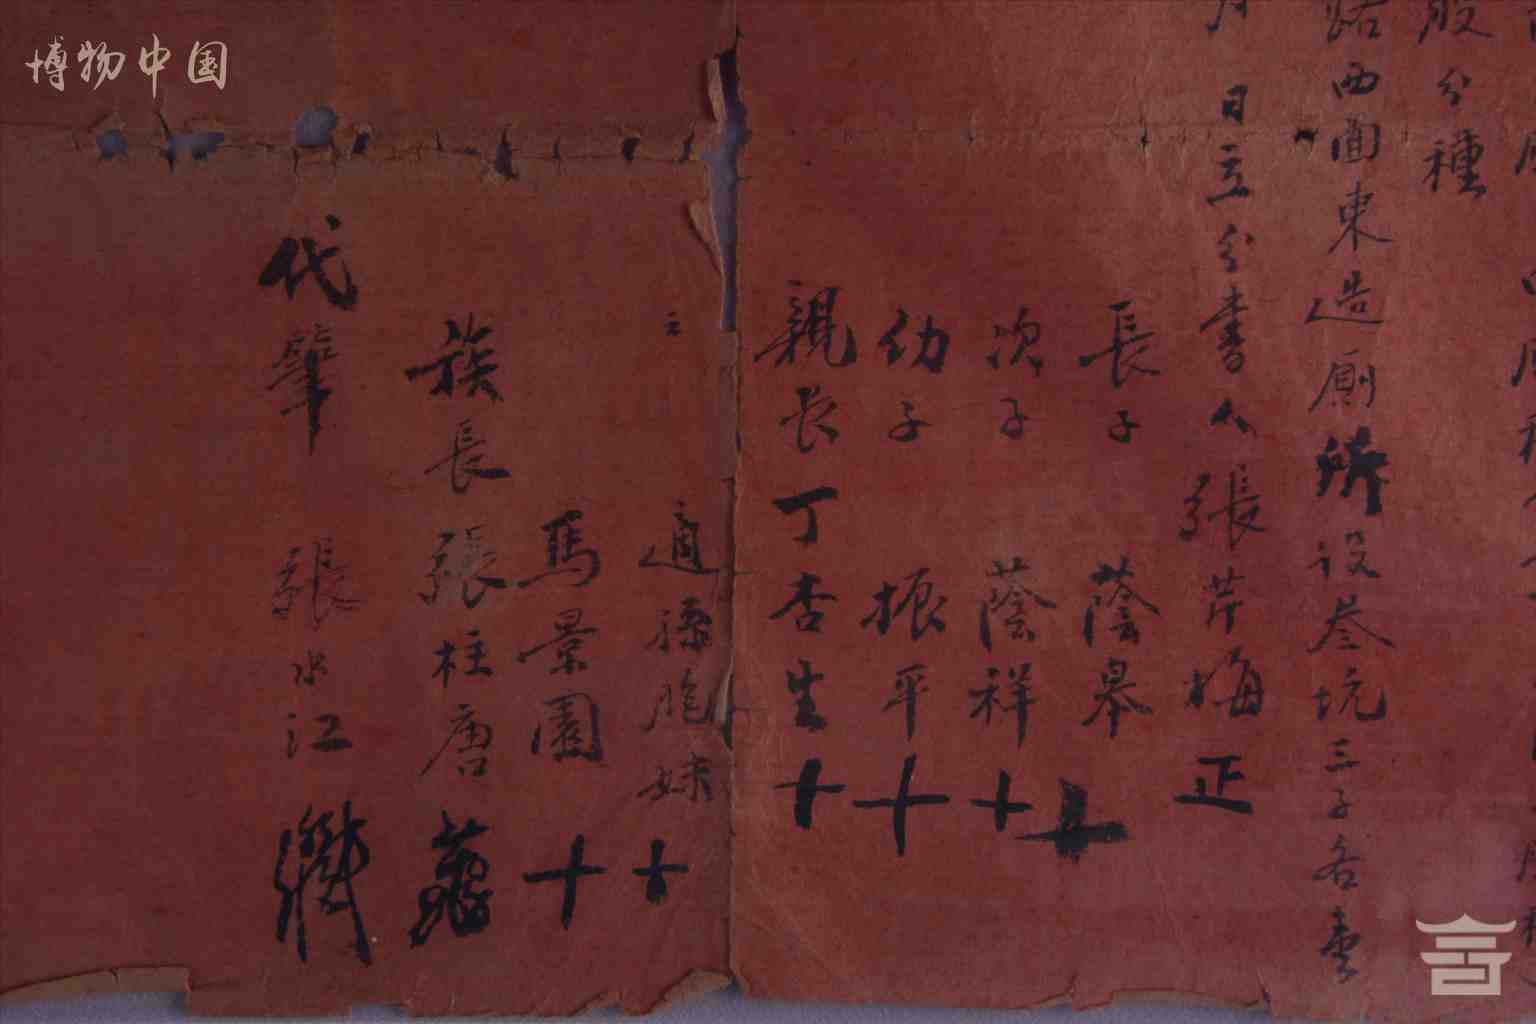 股分種
路西面東造厠所设叁坑三子各壹
月 日立分書人張芹梅正
長子 蔭皋十
次子 蔭祥十
幼子 振平十
親长丁杏生十
適孫胞妹十
馬景園十
族長張柱唐
代筆 張水江
博物中国